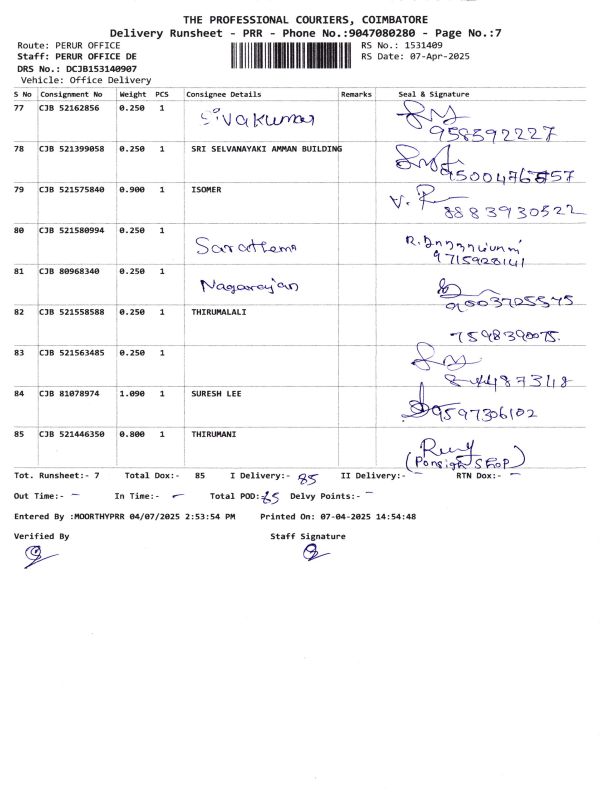 THE PROFESSIONAL COURIERS, COIMBATORE
Delivery Runsheet - PRR - Phone No.:9047080280 - Page No.:7
Route: PERUR OFFICE RS No.: 1531409
Staff: PERUR OFFICE DE RS Date: 07-Apr-2025
DRS No.: DCJB153140907
Vehicle: Office Delivery
S No Consignment No Weight PCS Consignee Details Remarks Seal & Signature
77 CJB 52162856 0.250 1 Sivakumar
958592227
78 CJB 521399058 0.250 1 SRI SELVANAYAKI AMMAN BUILDING
79 CJB 521575840 0.900 1 ISOMER V. R
8883930522
80 CJB 521580994 0.250 1
9715928141
81 CJB 80968340 0.250 1 Nagarajan
82 CJB 521558588 0.250 1 THIRUMALALI
7598390075.
83 CJB 521563485 0.250 1
84 CJB 81078974 1.090 1 SURESH LEE
9597306102
85 CJB 521446350 0.800 1 THIRUMANI
Tot. Runsheet:- 7 Total Dox:- 85 I Delivery:- 85 II Delivery:- - RTN Dox:- -
Out Time:- - In Time:- - Total POD:- 85 Delvy Points:- -
Entered By :MOORTHYPRR 04/07/2025 2:53:54 PM Printed On: 07-04-2025 14:54:48
Verified By Staff Signature